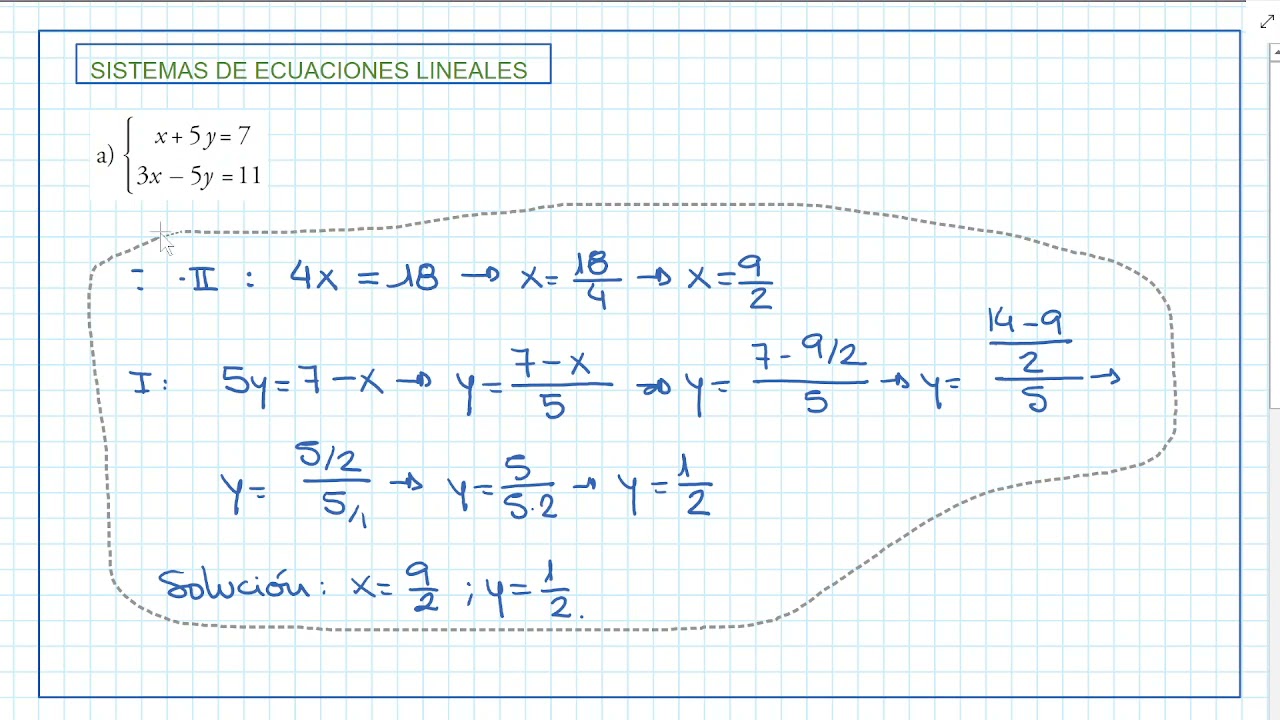 SISTEMAS DE ECUACIONES LINEALES
a) { x + 5y = 7
3x − 5y = 11
II : 4x = 18 → x = 18/4 → x = 9/2
I : 5y = 7 − x → y = (7 − x)/5 → y = (7 − 9/2)/5 → y = ((14 − 9)/2)/5 →
y = (5/2)/(5/1) → y = 5/(5·2) → y = 1/2
Solución : x = 9/2 ; y = 1/2.